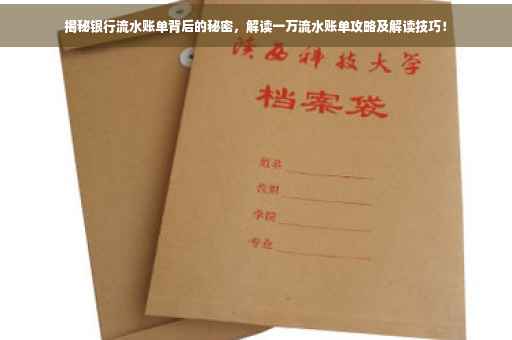 揭秘银行流水账单背后的秘密，解读一万流水账单攻略及解读技巧！
陕西科技大学
档案袋
姓名
学院
专业